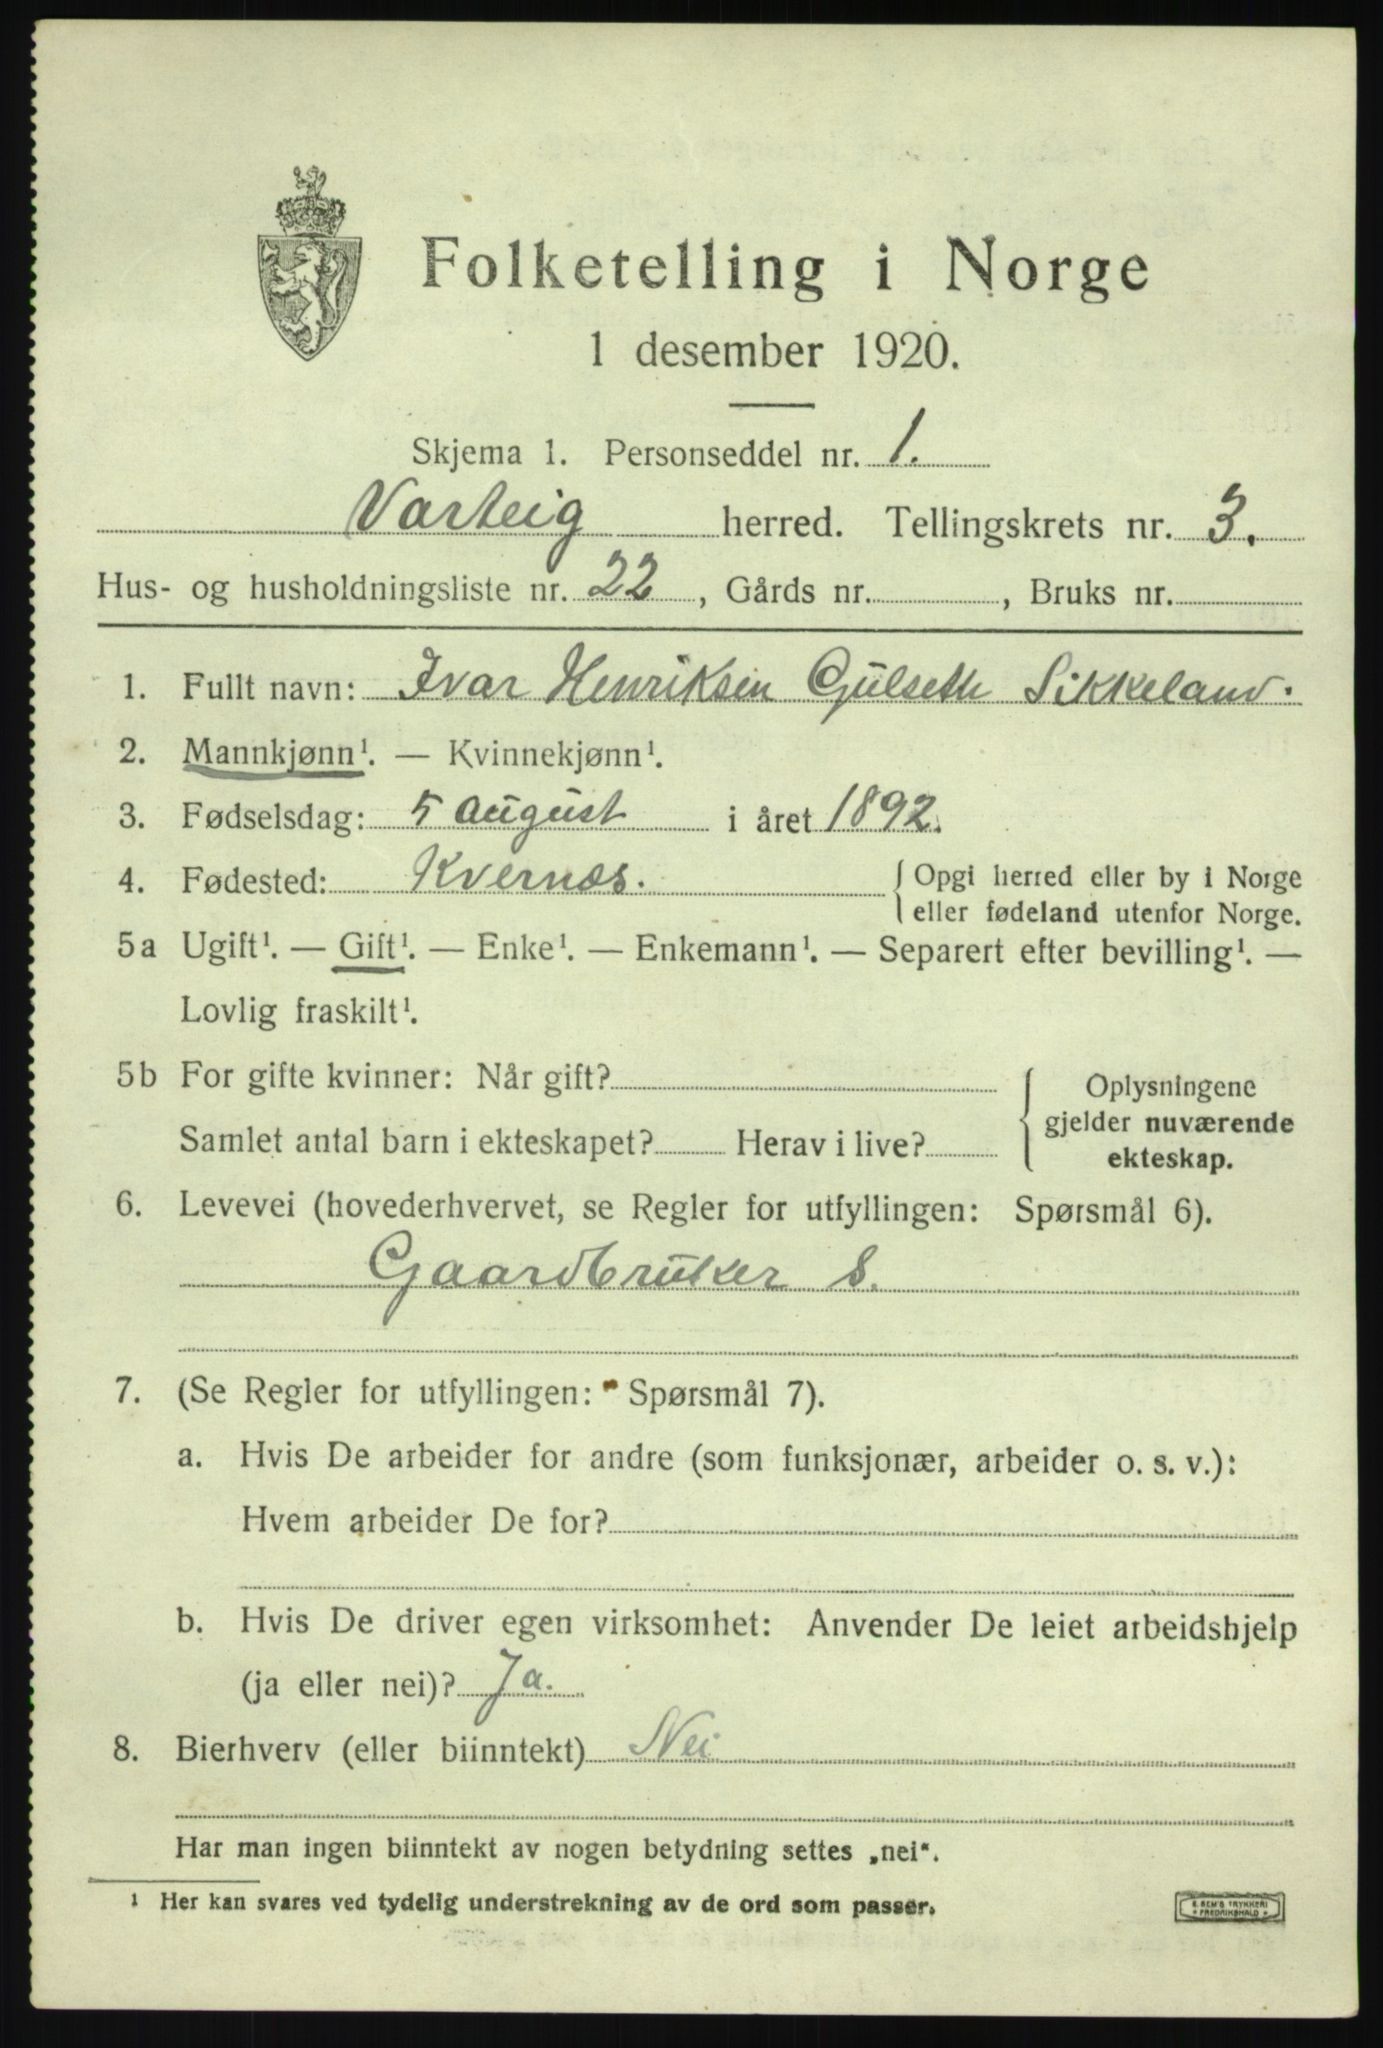 Folketelling i Norge
1 desember 1920.
Skjema 1. Personseddel nr. 1.
Varteig herred. Tellingskrets nr. 3.
Hus- og husholdningsliste nr. 22, Gårds nr. , Bruks nr.
1. Fullt navn: Ivar Henriksen Gulseth Sikkeland.
2. Mannkjønn¹. — Kvinnekjønn¹.
3. Fødselsdag: 5 August i året 1892.
4. Fødested: Kvernæs. { Opgi herred eller by i Norge
eller fødeland utenfor Norge.
5a Ugift¹. — Gift¹. — Enke¹. — Enkemann¹. — Separert efter bevilling¹. —
Lovlig fraskilt¹.
5b For gifte kvinner: Når gift? { Oplysningene
gjelder nuværende
Samlet antal barn i ekteskapet? Herav i live?
ekteskap.
6. Levevei (hovederhvervet, se Regler for utfyllingen: Spørsmål 6).
Gaardbruker S.
7. (Se Regler for utfyllingen: Spørsmål 7).
a. Hvis De arbeider for andre (som funksjonær, arbeider o. s. v.):
Hvem arbeider De for?
b. Hvis De driver egen virksomhet: Anvender De leiet arbeidshjelp
(ja eller nei)? Ja.
8. Bierhverv (eller biinntekt) Nei
Har man ingen biinntekt av nogen betydning settes „nei“.
¹ Her kan svares ved tydelig understrekning av de ord som passer.
E. SEM'S TRYKKERI
* FREDRIKSHALD *